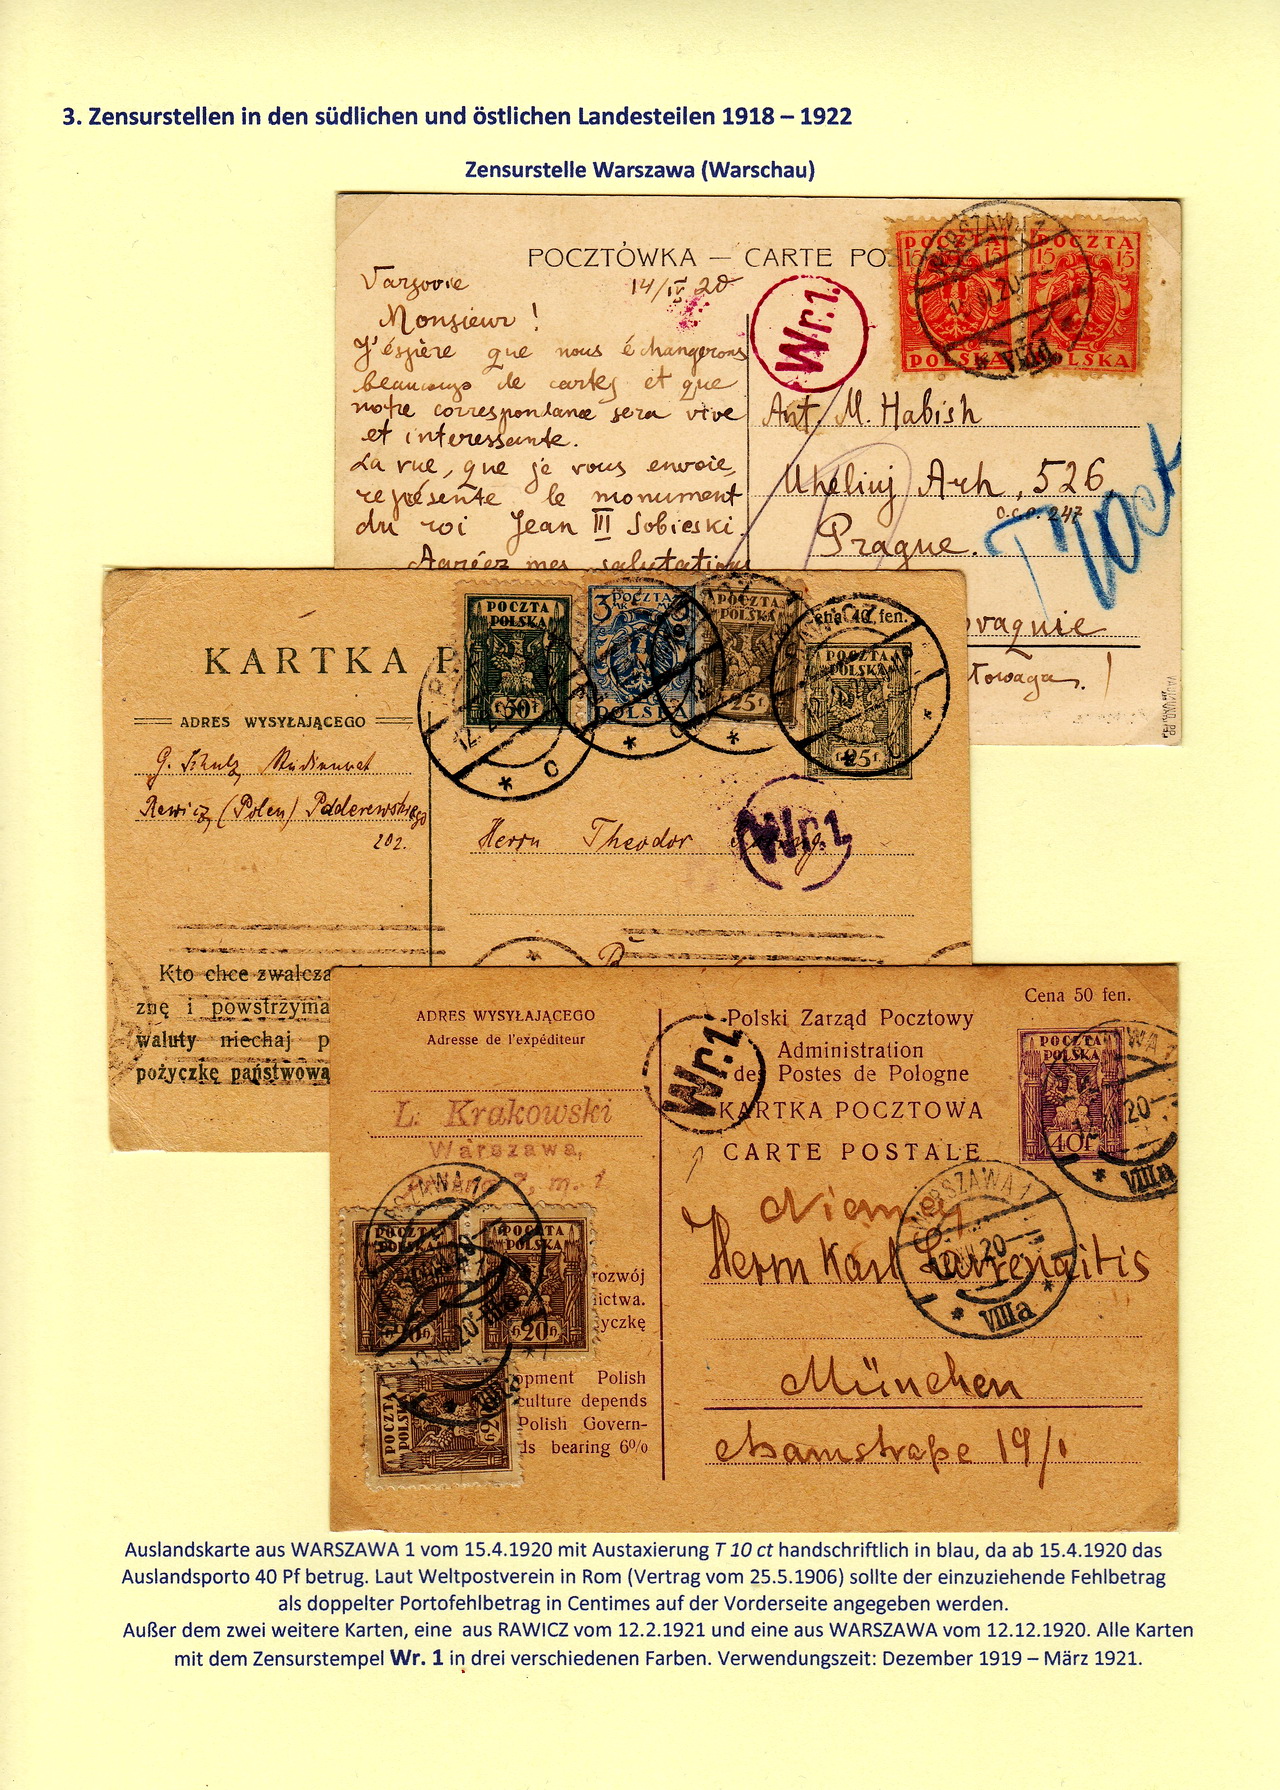 3. Zensurstellen in den südlichen und östlichen Landesteilen 1918 – 1922
Zensurstelle Warszawa (Warschau)
POCZTÓWKA — CARTE PO
Varsovie 14/IV 20
Monsieur !
J'éspère que nous échangerons
beaucoup de cartes et que
notre correspondance sera vive
et interessante.
La vue, que je vous envoie,
représente le monument
du roi Jean III Sobieski.
Agréez mes salutations
Wr.1.
POCZTA
15 15
POLSKA
POCZTA
15 15
POLSKA
WARSZAWA 1
VIIId
Ant. M. Habish
Arh, 526
o.c.p. 247
Prague.
T 10ct
KARTKA P
ADRES WYSYŁAJĄCEGO
G. Schulz,
Rawicz, (Polen)
202.
POCZTA
POLSKA
50f
3 POCZTA
POLSKA
POCZTA
POLSKA
25f
Cena 40 fen.
POCZTA
POLSKA
25f
Wr.1
Herrn Theodor
Kto chce zwalcza
znę i powstrzyma
waluty niechaj p
pożyczkę państwową
Cena 50 fen.
ADRES WYSYŁAJĄCEGO
Adresse de l'expéditeur
L. Krakowski
Warszawa,
7, m. 1
Wr.1
Polski Zarząd Pocztowy
Administration
des Postes de Pologne
KARTKA POCZTOWA
CARTE POSTALE
POCZTA
POLSKA
40f
WARSZAWA 1
VIIIa
Niemcy
Herrn Karl
WARSZAWA 1
VIIIa
München
19/1
POCZTA
POLSKA
20
POCZTA
POLSKA
20
POCZTA
POLSKA
20
rozwój
ictwa.
yczkę
opment Polish
culture depends
Polish Govern-
ds bearing 6%
Auslandskarte aus WARSZAWA 1 vom 15.4.1920 mit Austaxierung T 10 ct handschriftlich in blau, da ab 15.4.1920 das
Auslandsporto 40 Pf betrug. Laut Weltpostverein in Rom (Vertrag vom 25.5.1906) sollte der einzuziehende Fehlbetrag
als doppelter Portofehlbetrag in Centimes auf der Vorderseite angegeben werden.
Außer dem zwei weitere Karten, eine aus RAWICZ vom 12.2.1921 und eine aus WARSZAWA vom 12.12.1920. Alle Karten
mit dem Zensurstempel Wr. 1 in drei verschiedenen Farben. Verwendungszeit: Dezember 1919 – März 1921.